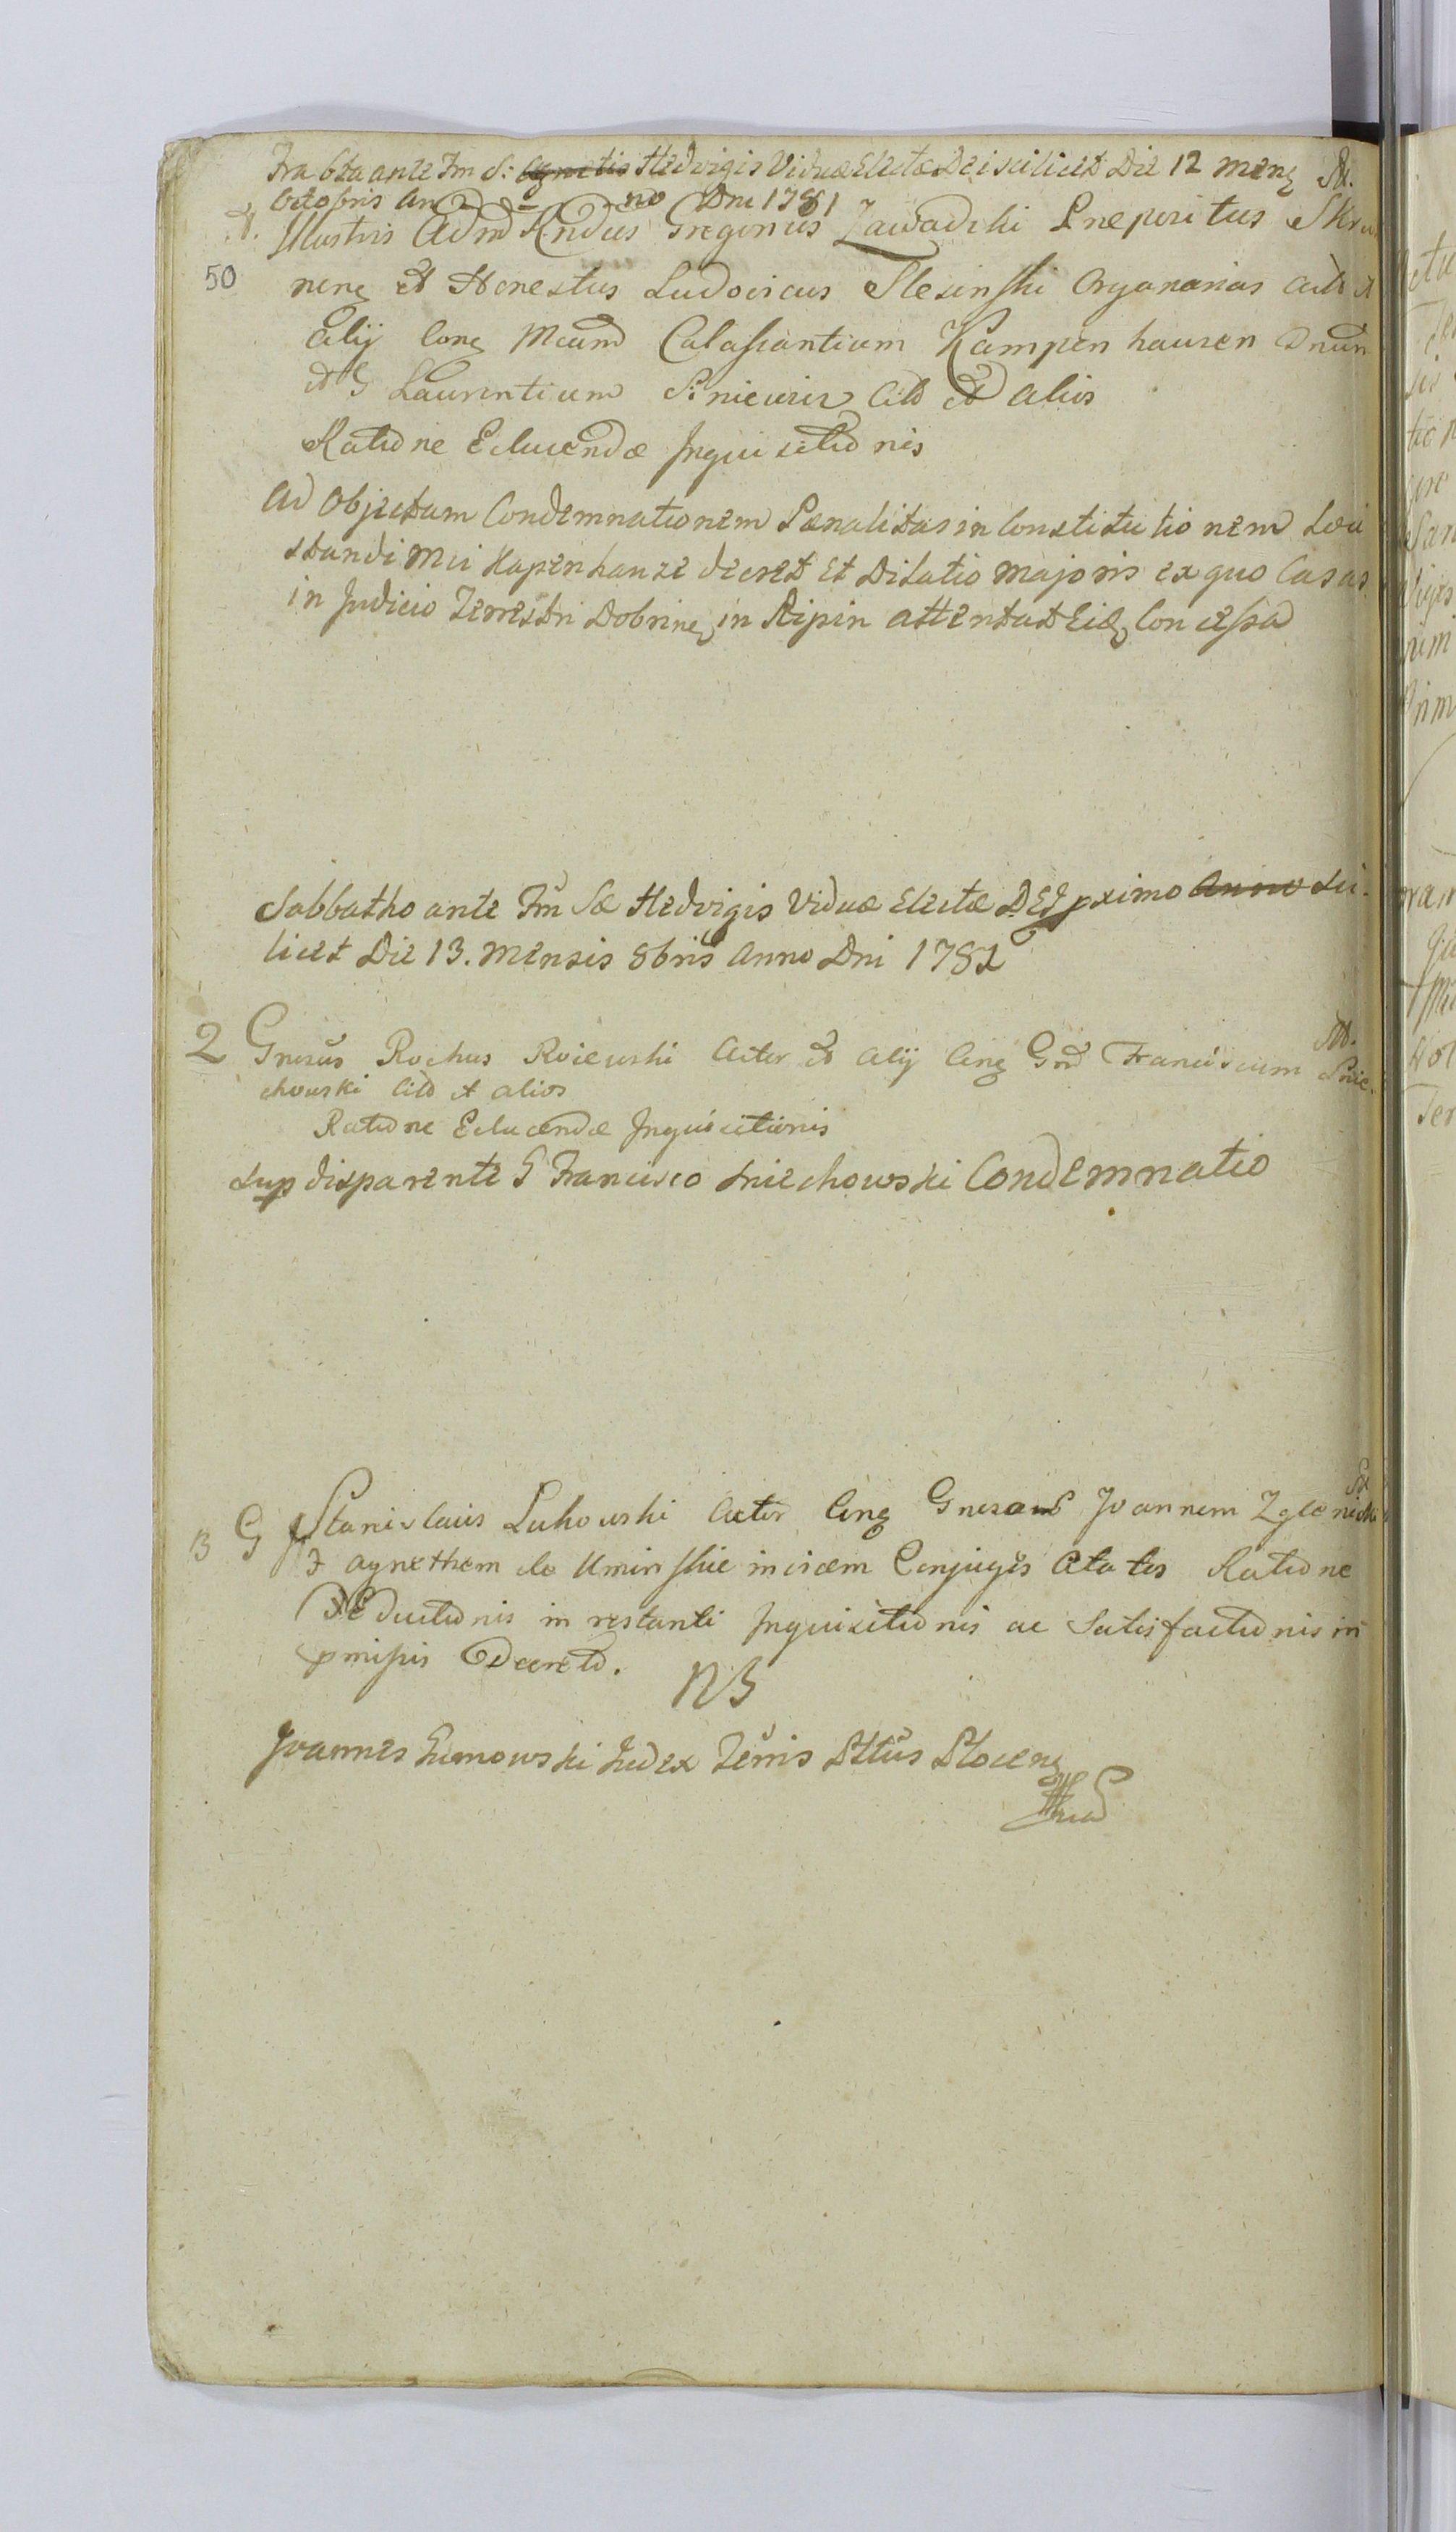 Fra 6ta ante Fm S: Agnetis Hedvigis Viduæ Electæ Dei scilicet Die 12 Mens
8bris Anno Dni 1781
Illustris Admd Rndus Gregorius Zawadzki Præpositus Skrw
50 nens et Honestus Ludovicus Slesinski Organarius Act et
alij Cong Mcum Calasantium Kampenhausen Dnum
et G Laurentium Sniewicz Cit et alios
Ratione Educendæ Inquisitionis
Ad Objectam Condemnationem Pænalitas in Constitutionem Loci
standi Mci Kapenhauze decret Et Dilatio Majoris ex quo Casus
in Judicio Terrestri Dobrinens in Ripin attentat Eid Concessa
Sabbatho ante Fm Sæ Hedvigis Viduæ Electæ DEI pximo Anno sci
licet Die 13. Mensis 8bris Anno Dni 1781
2 Gnrsus Rochus Roiewski Actor et alij Cong Gnd Franciscum Snie
chowski Cit et alios
Ratione Educendæ Inquisitionis
Sup disparente G Francisco Sniechowski Condemnatio
3 G Stanislaus Lukowski Actor Cong Gnrsum Joannem Zglenicki
et Agnethem de Uminskie invicem Conjuges Citatos Ratione
Deductionis in restanti Inquisitionis ac Satisfactionis in
pmissis Decreto.
NB
Joannes Gumowski Judex Terris Pttus Plocens